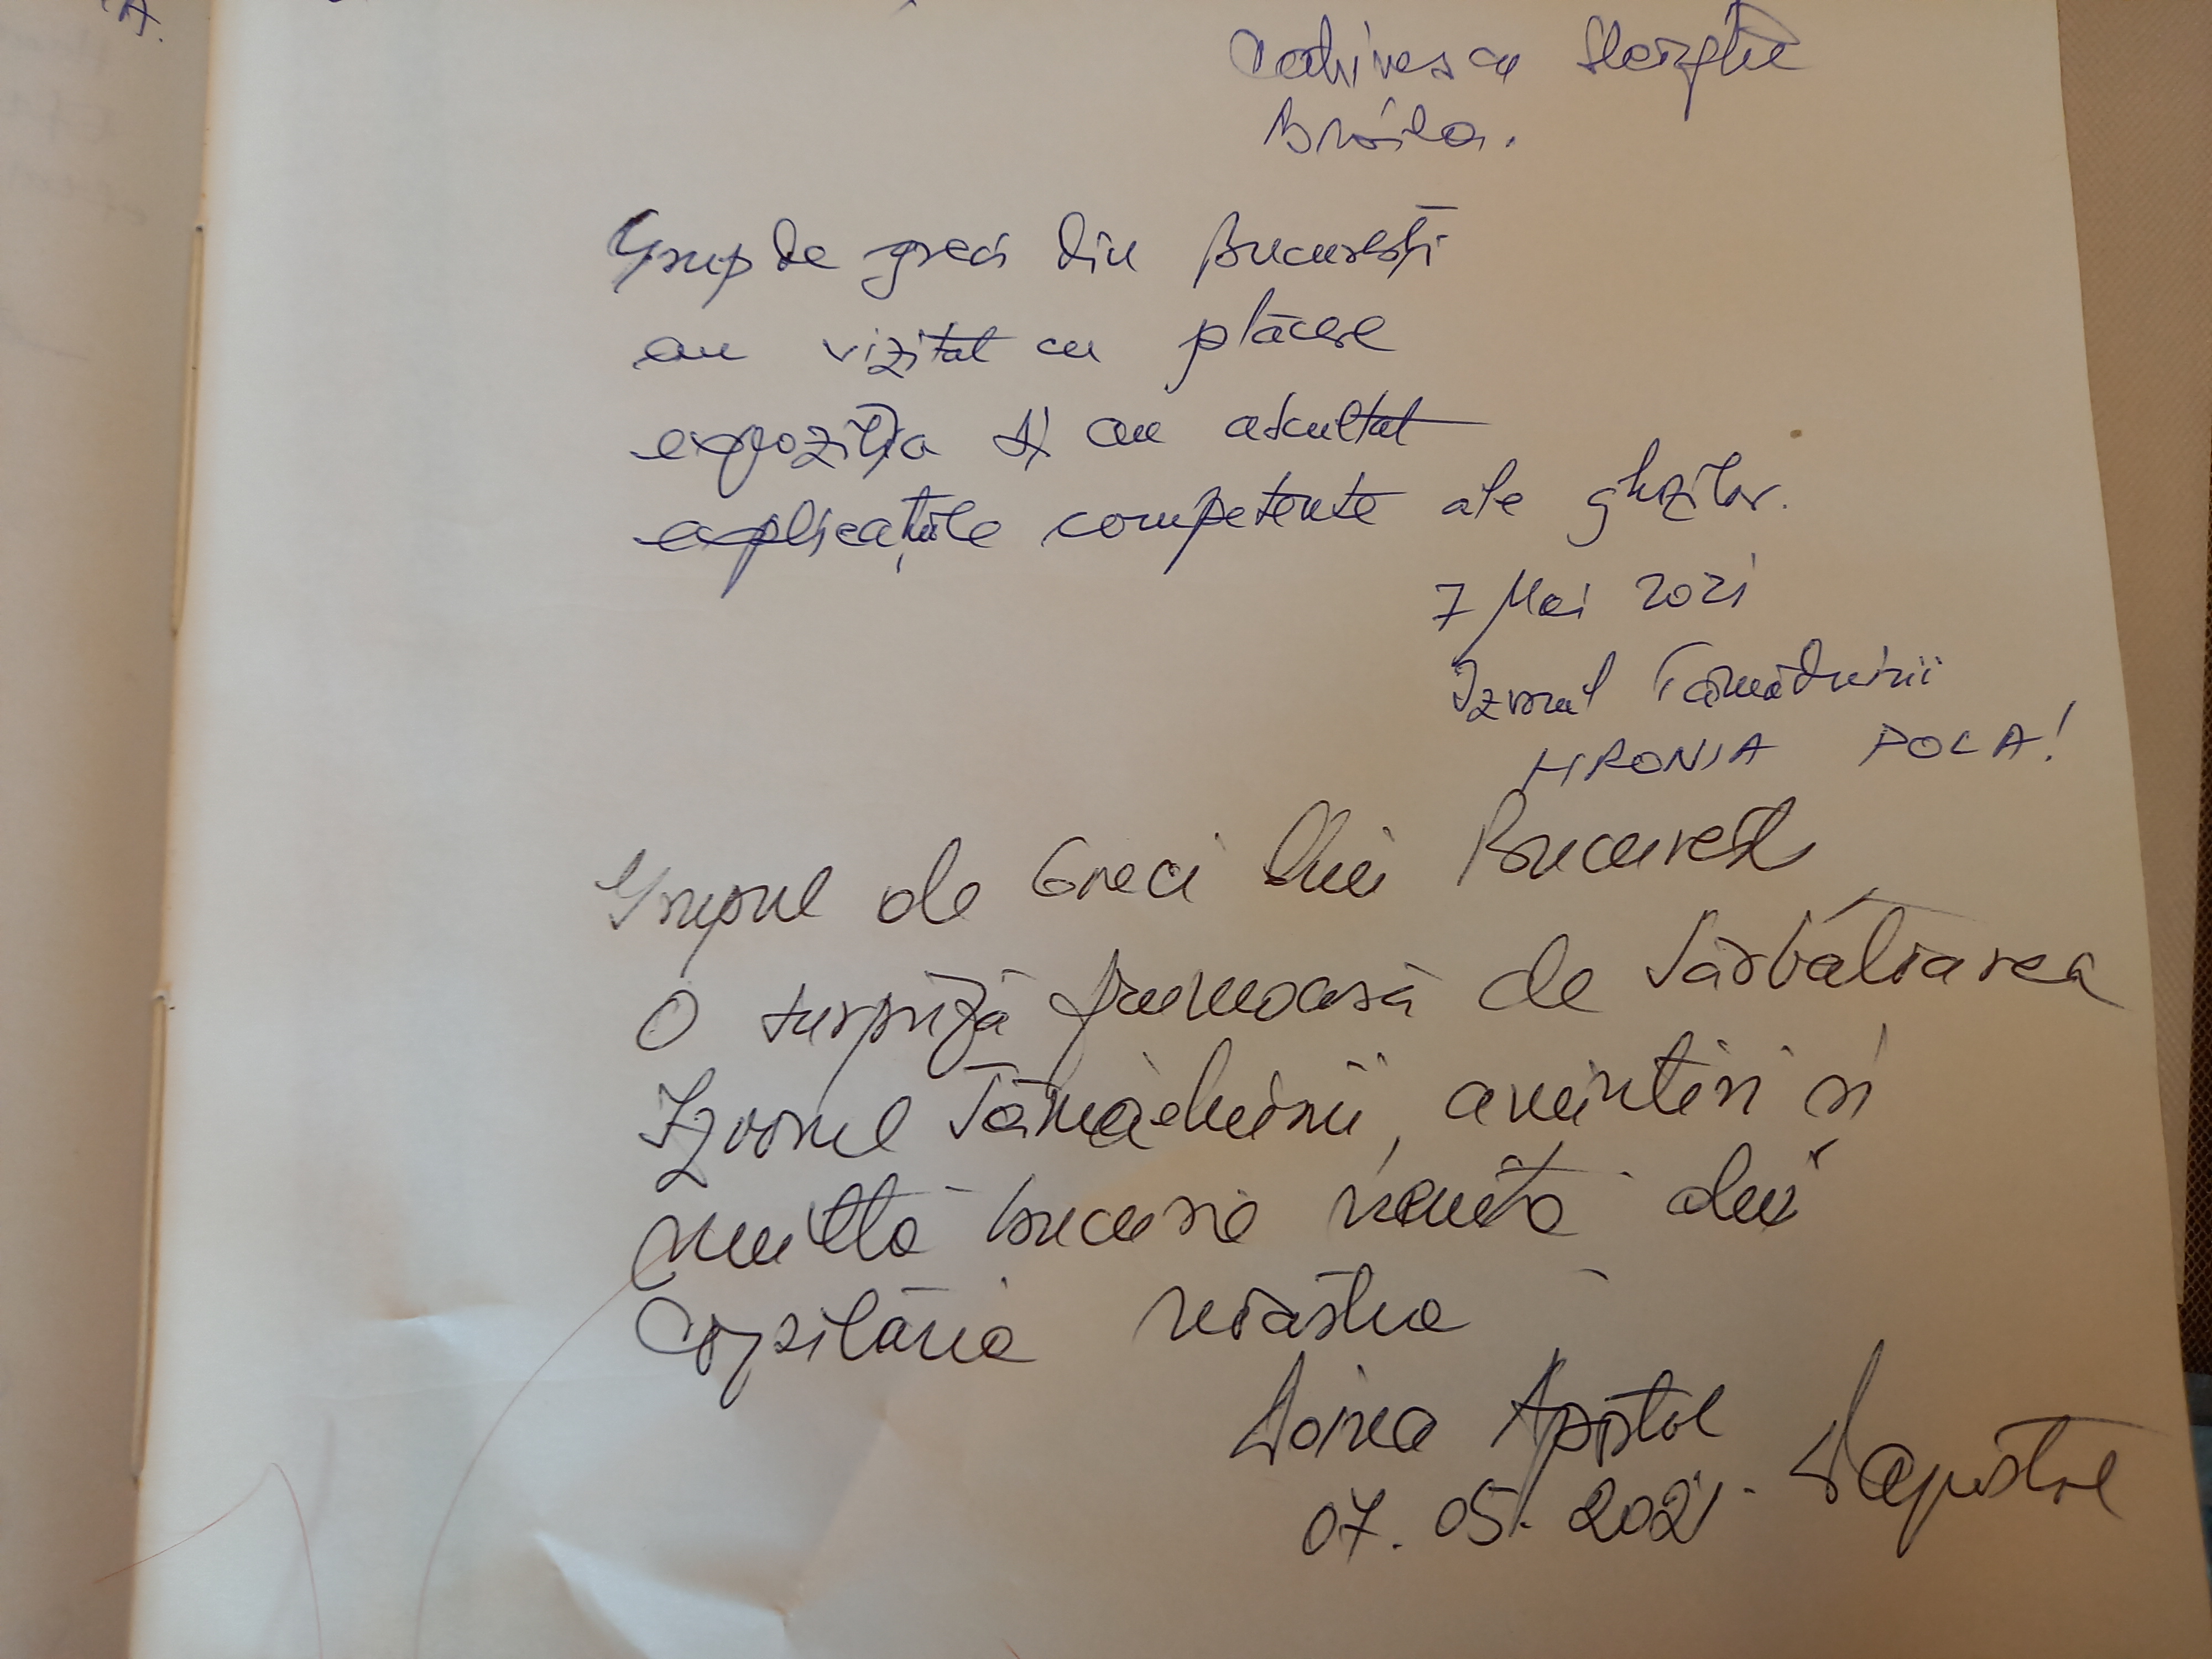 Gheorghe
Brăila.
Grup de greci din București
au vizitat cu plăcere
expoziția și au ascultat
explicațiile competente ale ghizilor.
7 Mai 2021
Izvorul Tămăduirii
HRONIA POLA!
Grupul de Greci din București
O surpriză frumoasă de Sărbătoarea
Izvorul Tămăduirii, amintiri și
multă bucurie venită din
Copilăria noastră
Doina Apostol
07.05.2021. DApostol